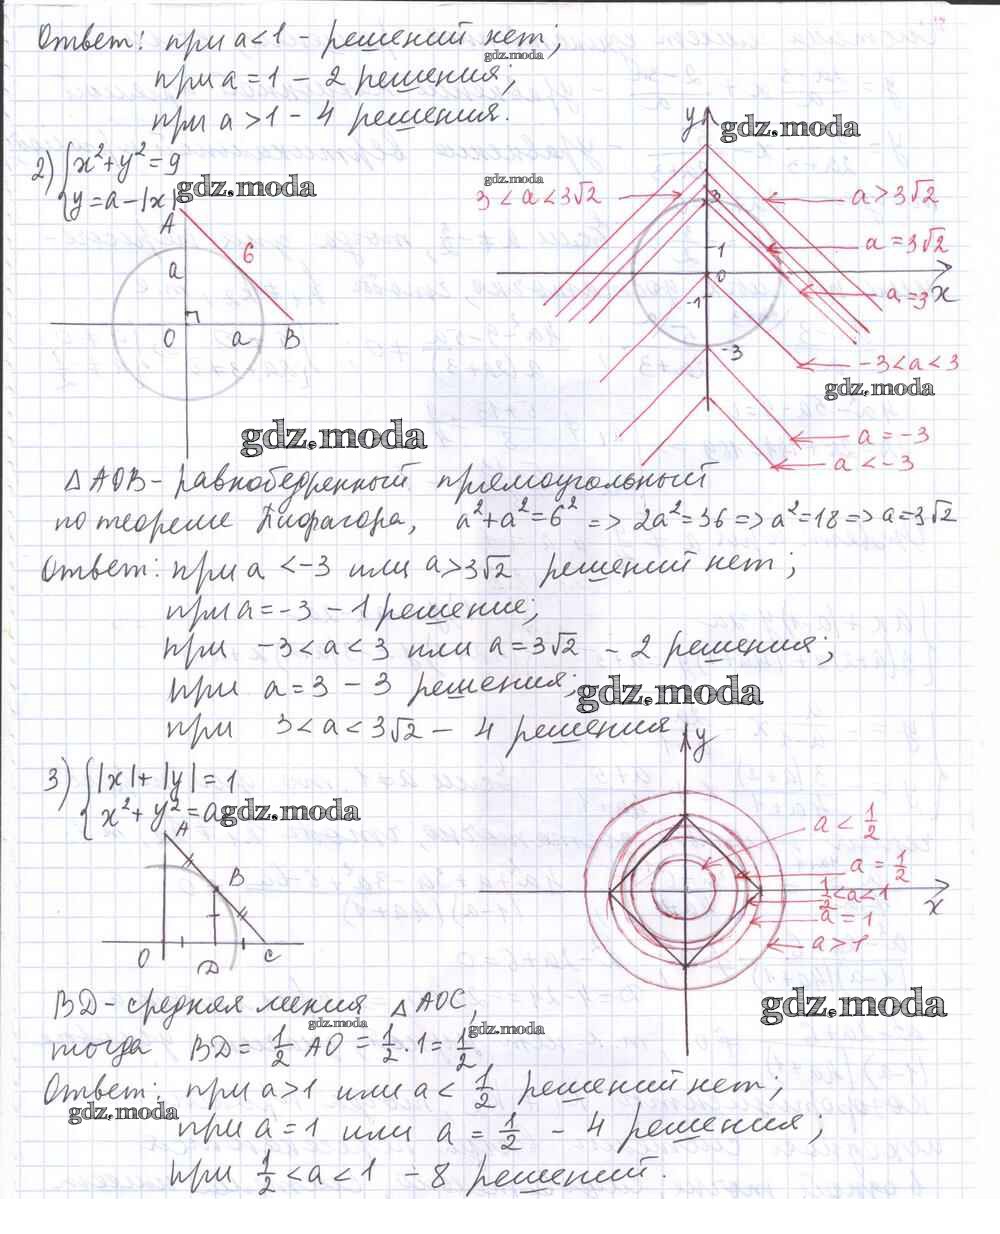 Ответ: при a < 1 - решений нет;
gdz.moda
при a = 1 - 2 решения;
при a > 1 - 4 решения.
2) { x² + y² = 9
y = a - |x|
gdz.moda
A
6
a
O a B
y
gdz.moda
gdz.moda
3 < a < 3√2
a > 3√2
3
1
a = 3√2
0
x
-1
a = 3
-3
-3 < a < 3
gdz.moda
a = -3
a < -3
gdz.moda
△AOB - равнобедренный прямоугольный
по теореме Пифагора, a² + a² = 6² => 2a² = 36 => a² = 18 => a = 3√2
Ответ: при a < -3 или a > 3√2 решений нет;
при a = -3 - 1 решение;
при -3 < a < 3 или a = 3√2 - 2 решения;
при a = 3 - 3 решения;
gdz.moda
при 3 < a < 3√2 - 4 решения
3) { |x| + |y| = 1
x² + y² = a
gdz.moda
A
B
O D C
y
a < 1/2
a = 1/2
1/2 < a < 1
x
a = 1
a > 1
gdz.moda
BD - средняя линия △AOC,
gdz.moda
gdz.moda
тогда BD = 1/2 AO = 1/2 · 1 = 1/2
Ответ: при a > 1 или a < 1/2 решений нет;
gdz.moda
при a = 1 или a = 1/2 - 4 решения;
при 1/2 < a < 1 - 8 решений.